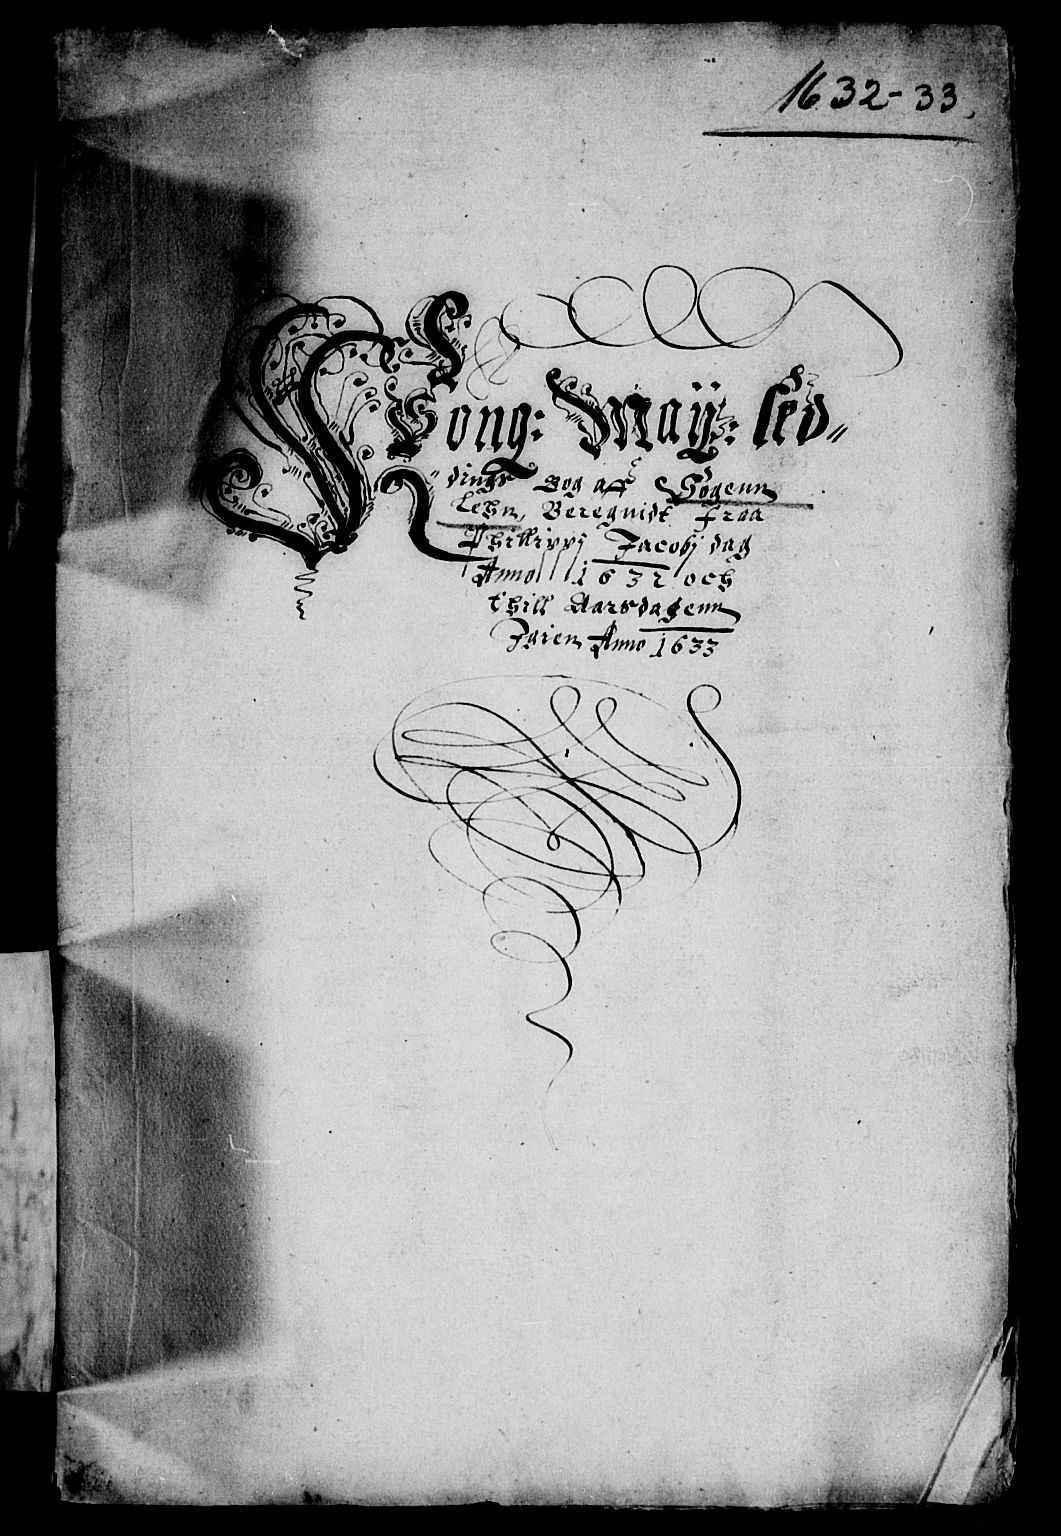 1632-33.
Kong: Maÿ: led„
„dings Bog aff Hogenn
Lehn, Beregnidt fraa
Phillippi Jacobi dag
Anno 1632 och
thill Aarsdagenn
Igien Anno 1633